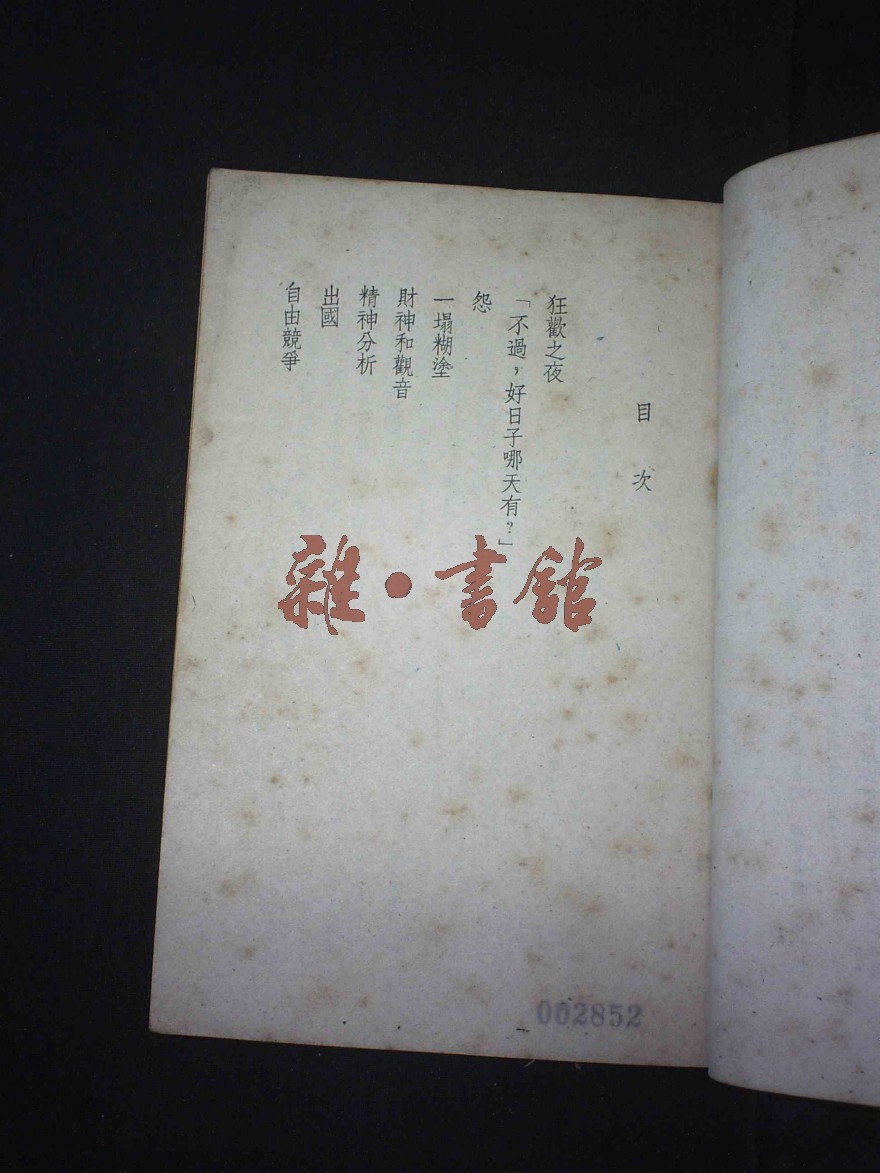 目次
狂歡之夜
「不過，好日子哪天有？」
怨
一塌糊塗
財神和觀音
精神分析
出國
自由競爭
雜·書館
002852